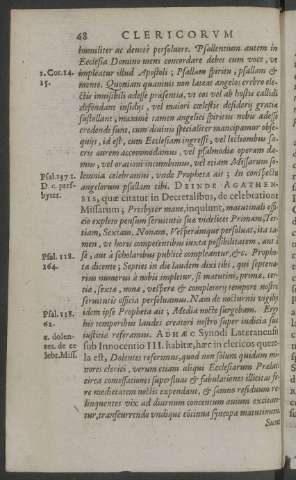 68 CLERICORVM
humiliter ac deuotè persoluere. Psallentium autem in
Ecclesia Domino mens concordare debet cum voce, vt
1. Cor. 14. 15.
impleatur illud Apostoli; Psallam spiritu, psallam &
mente. Quoniam quamuis non lateat angelos crebro ele-
ctis inuisibili adesse præsentia, vt eos vel ab hostis callidi
defendant insidijs, vel maiori cælestis desiderij gratia
sustollant, maximè tamen angelici spiritus nobis adesse
credendi sunt, cum diuinis specialiter mancipamur obse-
quijs, id est, cum Ecclesiam ingressi, vel lectionibus sa-
cris aurem accommodamus, vel psalmodiæ operam da-
mus, vel orationi incumbimus, vel etiam Missarum so-
Psal. 137. 1.
lemnia celebramus, vnde Propheta ait; In conspectu
D. c. pres-
byter.
angelorum psallam tibi. DEINDE AGATHEN-
SIS, quæ citatur in Decretalibus, de celebratione
Missarum; Presbyter mane, inquiunt, matutinali offi-
cio expleto pensum seruitutis suæ videlicet Primam, Ter-
tiam, Sextam, Nonam, Vesperámque persoluat, ita ta-
men, vt horis competentibus iuxta possibilitatem, aut à
Psal. 118. 164.
se, aut à scholaribus publicè compleantur, &c. Prophe-
ta dicente; Septies in die laudem dixi tibi, qui septena-
rius numerus à nobis impletur, si matutini, primæ, ter-
tiæ, sextæ, nonæ, vesperæ & completorij tempore nostri
seruitutis officia persoluamus. Nam de nocturnis vigilijs
Psal. 118. 62.
idem ipse Propheta ait; Media nocte surgebam. Ergo
his temporibus laudes creatori nostro super iudicia suæ
e. dolen-
tes. de ce-
lebr. Miss.
iustitiæ referamus. ADHÆC Synodi Lateranensis
sub Innocentio III. habitæ, hæc in clericos quere-
la est, Dolentes referimus, quod non solum quidam mi-
nores clerici, verum etiam aliqui Ecclesiarum Prælati
circa comessationes superfluas & fabulationes illicitas fe-
re medietatem noctis expendunt, & somno residuum re-
linquentes vix ad diurnum concentum auium excitan-
tur, transcurrendo vndique continua syncopa matutinum.
Sunt